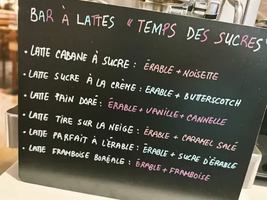 BAR À LATTES "TEMPS DES SUCRES"
• LATTE CABANE À SUCRE : ÉRABLE + NOISETTE
• LATTE SUCRE À LA CRÈME : ÉRABLE + BUTTERSCOTCH
• LATTE PAIN DORÉ : ÉRABLE + VANILLE + CANNELLE
• LATTE TIRE SUR LA NEIGE : ÉRABLE + CARAMEL SALÉ
• LATTE PARFAIT À L'ÉRABLE : ÉRABLE + SUCRE D'ÉRABLE
• LATTE FRAMBOISE BORÉALE : ÉRABLE + FRAMBOISE